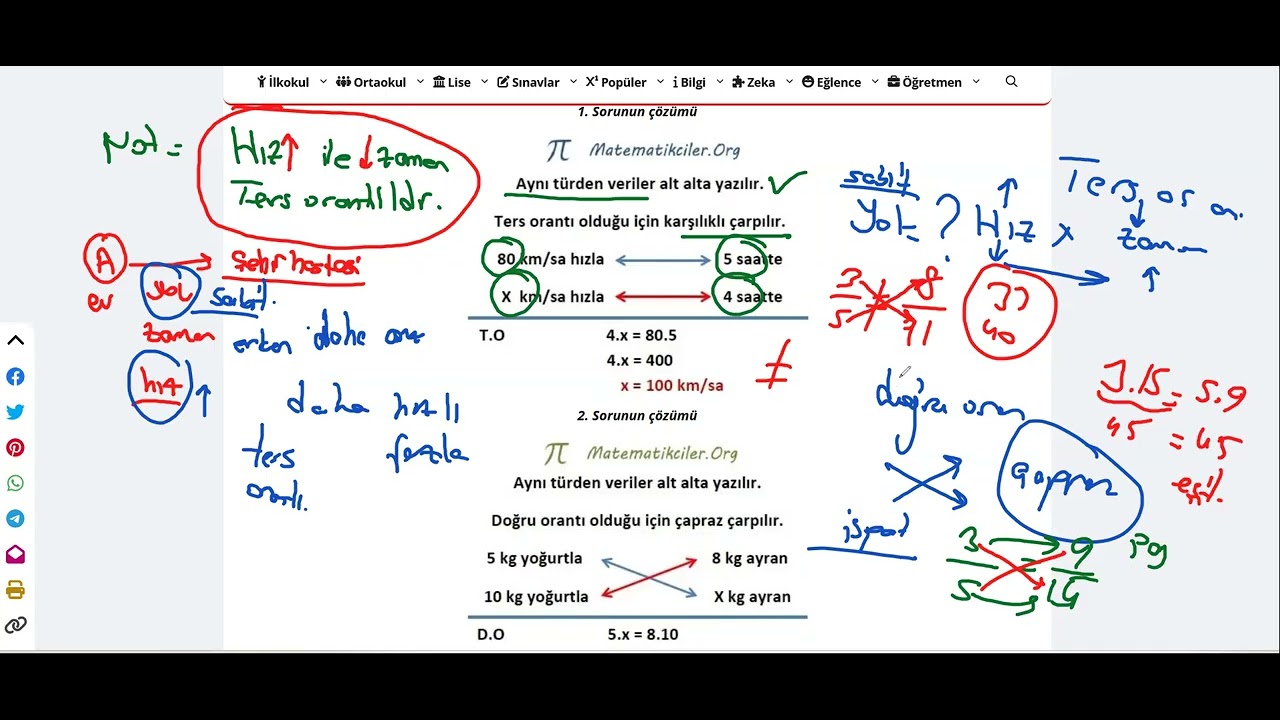 İlkokul Ortaokul Lise Sınavlar X¹ Popüler i Bilgi Zeka Eğlence Öğretmen
1. Sorunun çözümü
π Matematikciler.Org
Aynı türden veriler alt alta yazılır.
Ters orantı olduğu için karşılıklı çarpılır.
80 km/sa hızla 5 saatte
X km/sa hızla 4 saatte
T.O 4.x = 80.5
4.x = 400
x = 100 km/sa
2. Sorunun çözümü
π Matematikciler.Org
Aynı türden veriler alt alta yazılır.
Doğru orantı olduğu için çapraz çarpılır.
5 kg yoğurtla 8 kg ayran
10 kg yoğurtla X kg ayran
D.O 5.x = 8.10
Not =
Hız ile zaman
Ters orantılıdır.
A
ev
yol sabit.
zaman
hız
erken daha
daha hızlı
fazla
ters
orantı.
sabit
Yol = ? Hız x zaman
Ters
3 8
5
33
40
≠
doğru oran
çapraz
ispat
3 = 9
5
3.15 = 5.9
45 = 45
eşit.